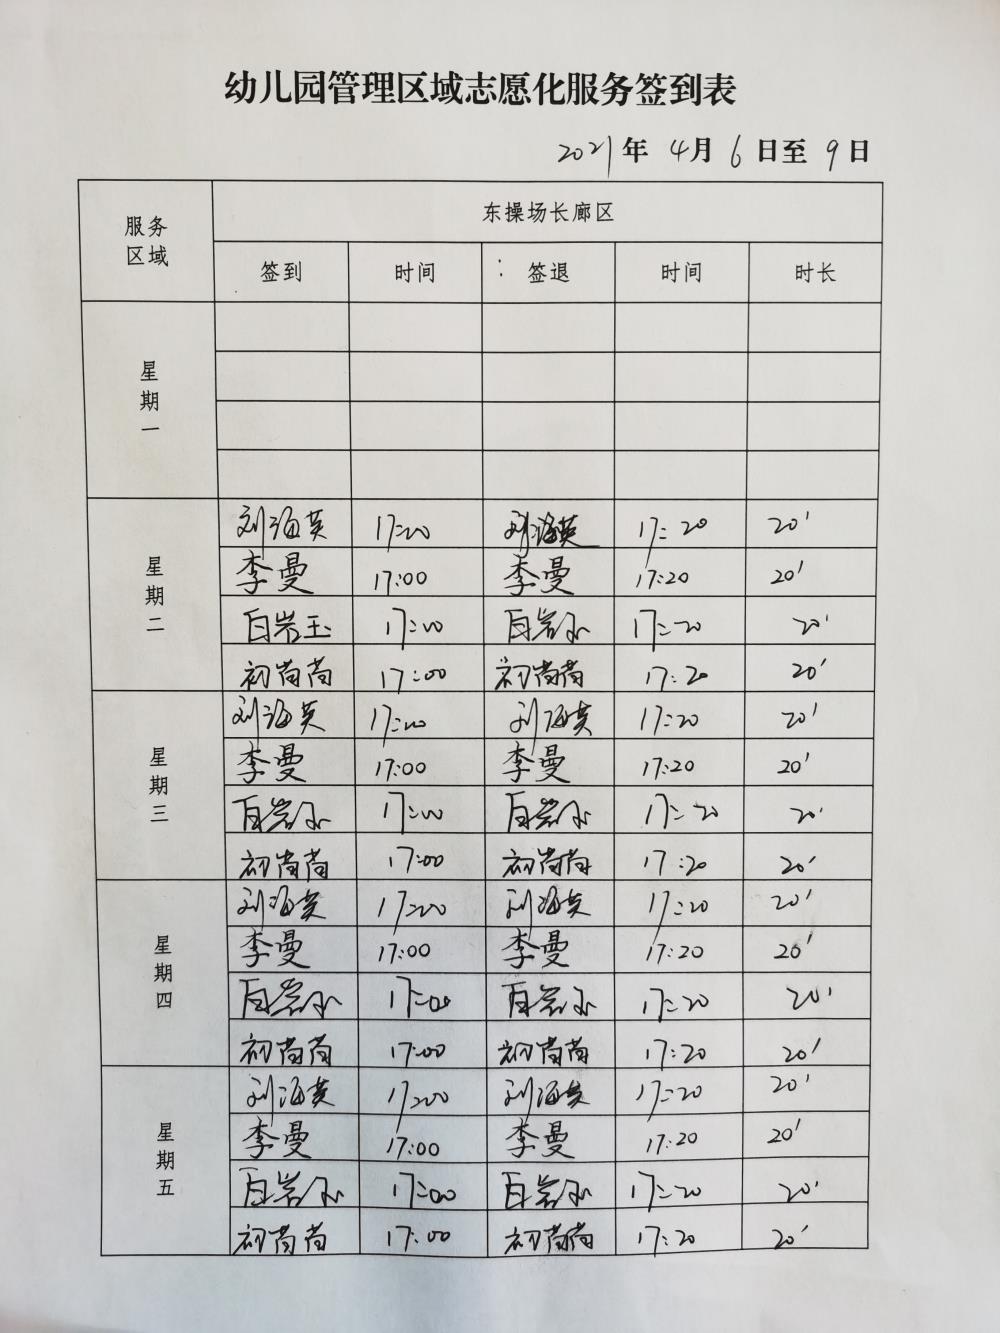 幼儿园管理区域志愿化服务签到表
2021年 4月 6日至 9日
服务区域 东操场长廊区
签到 时间 签退 时间 时长
星期一
星期二
刘海英 17:00 刘海英 17:20 20'
李曼 17:00 李曼 17:20 20'
白岩玉 17:00 白岩玉 17:20 20'
初苗苗 17:00 初苗苗 17:20 20'
星期三
刘海英 17:00 刘海英 17:20 20'
李曼 17:00 李曼 17:20 20'
白岩玉 17:00 白岩玉 17:20 20'
初苗苗 17:00 初苗苗 17:20 20'
星期四
刘海英 17:00 刘海英 17:20 20'
李曼 17:00 李曼 17:20 20'
白岩玉 17:00 白岩玉 17:20 20'
初苗苗 17:00 初苗苗 17:20 20'
星期五
刘海英 17:00 刘海英 17:20 20'
李曼 17:00 李曼 17:20 20'
白岩玉 17:00 白岩玉 17:20 20'
初苗苗 17:00 初苗苗 17:20 20'